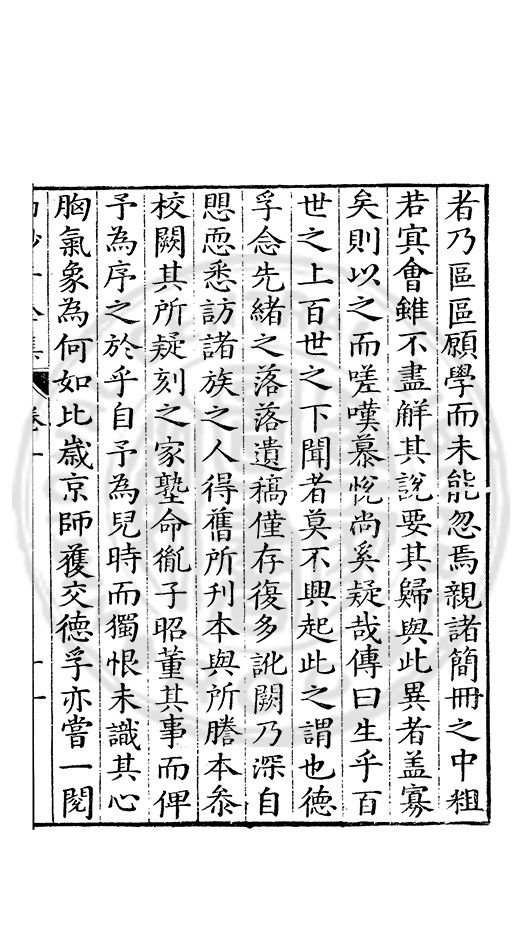 者乃區區願學而未能忽焉親諸簡冊之中粗
若㝠會雖不盡觧其說要其歸與此異者盖寡
矣則以之而嗟嘆慕恱尚奚疑哉傳曰生乎百
世之上百世之下聞者莫不興起此之謂也德
孚念先緒之落落遺稿僅存復多訛闕乃深自
思恧悉訪諸族之人得舊所刊本與所謄本叅
校闕其所疑刻之家塾命胤子昭董其事而俾
予為序之於乎自予為兒時而獨恨未識其心
胸氣象為何如比嵗京師獲交德孚亦嘗一閱